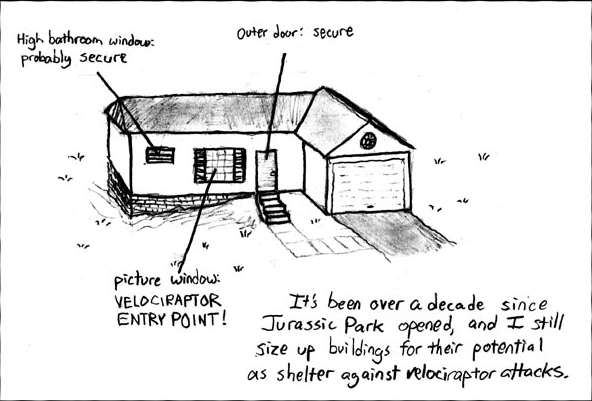 High bathroom window:
probably secure
Outer door: secure
picture window:
VELOCIRAPTOR
ENTRY POINT!
It's been over a decade since
Jurassic Park opened, and I still
size up buildings for their potential
as shelter against velociraptor attacks.